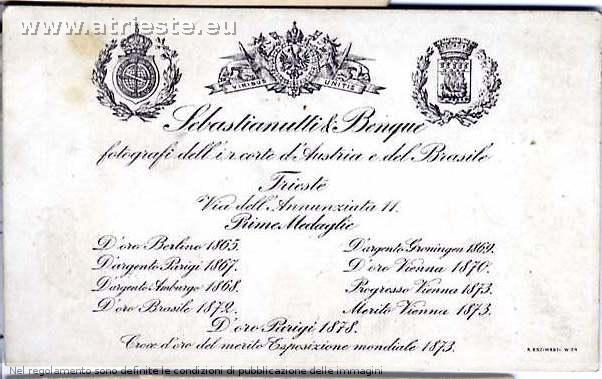 www.atrieste.eu
VIRIBUS UNITIS
Sebastianutti & Benque
fotografi dell'i.r. corte d'Austria e del Brasile
Trieste
Via dell'Annunziata 11.
Prime Medaglie
D'oro Berlino 1865. D'argento Groningen 1869.
D'argento Parigi 1867. D'oro Vienna 1870.
D'argento Amburgo 1868. Progresso Vienna 1873.
D'oro Brasile 1872. Merito Vienna 1873.
D'oro Parigi 1878.
Croce d'oro del merito Esposizione mondiale 1873.
WIEN
Nel regolamento sono definite le condizioni di pubblicazione delle immagini